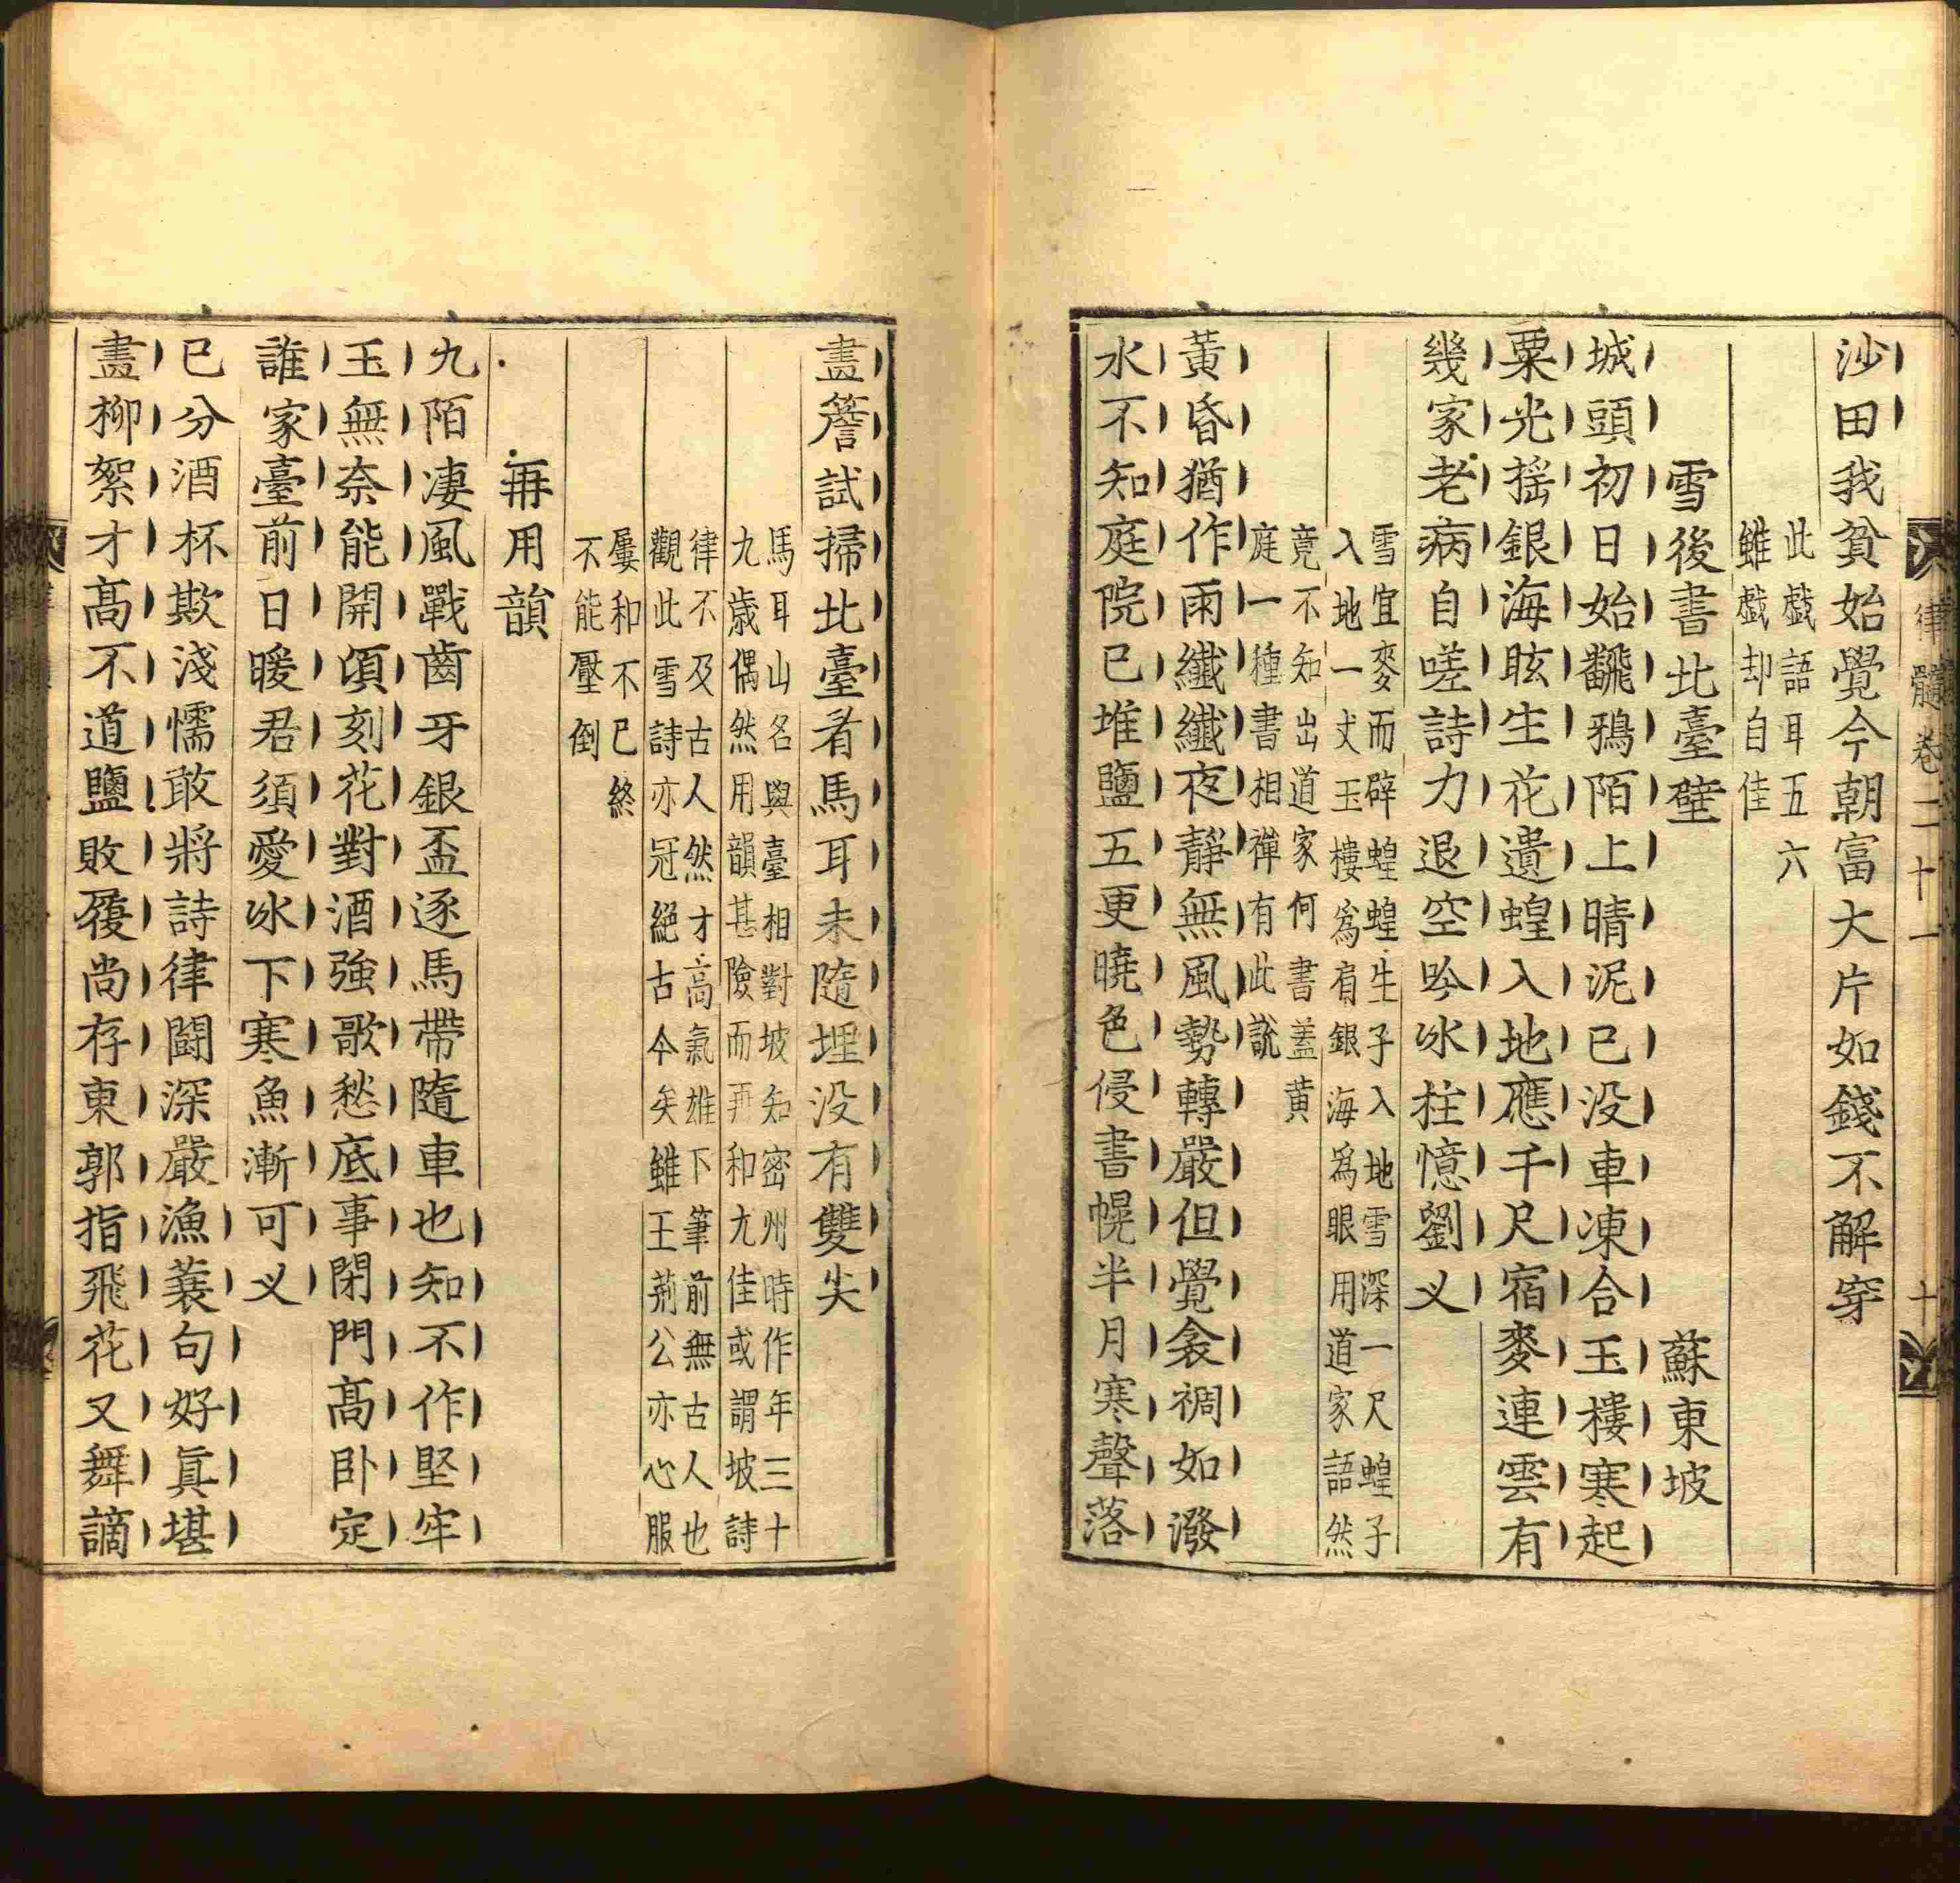 沙田我貧始覺今朝富大片如錢不解穿
此戲語耳五六
雖戲却自佳
雪後書北臺壁
蘇東坡
城頭初日始飜鴉陌上晴泥已没車凍合玉樓寒起
粟光搖銀海眩生花遺蝗入地應千尺宿麥連雲有
幾家老病自嗟詩力退空吟冰柱憶劉义
雪宜麥而辟蝗蝗生子入地雪深一尺蝗子
入地一丈玉樓爲肩銀海爲眼用道家語然
竟不知出道家何書蓋黄
庭一種書相禪有此說
黃昏猶作雨纖纖夜靜無風勢轉嚴但覺衾裯如潑
水不知庭院已堆鹽五更曉色侵書幌半月寒聲落
律髓卷二十一
十
畵簷試掃北臺看馬耳未隨埋没有雙尖
馬耳山名與臺相對坡知密州時作年三十
九歲偶然用韻甚險而再和尤佳或謂坡詩
律不及古人然才高氣雄下筆前無古人也
觀此雪詩亦冠絕古今矣雖王荊公亦心服
屢和不已終
不能壓倒
再用韻
九陌凄風戰齒牙銀盃逐馬帶隨車也知不作堅牢
玉無奈能開頃刻花對酒強歌愁底事閉門高卧定
誰家臺前日暖君須愛冰下寒魚漸可义
已分酒杯欺淺懦敢將詩律鬪深嚴漁蓑句好眞堪
畵柳絮才高不道鹽敗履尚存東郭指飛花又舞謫